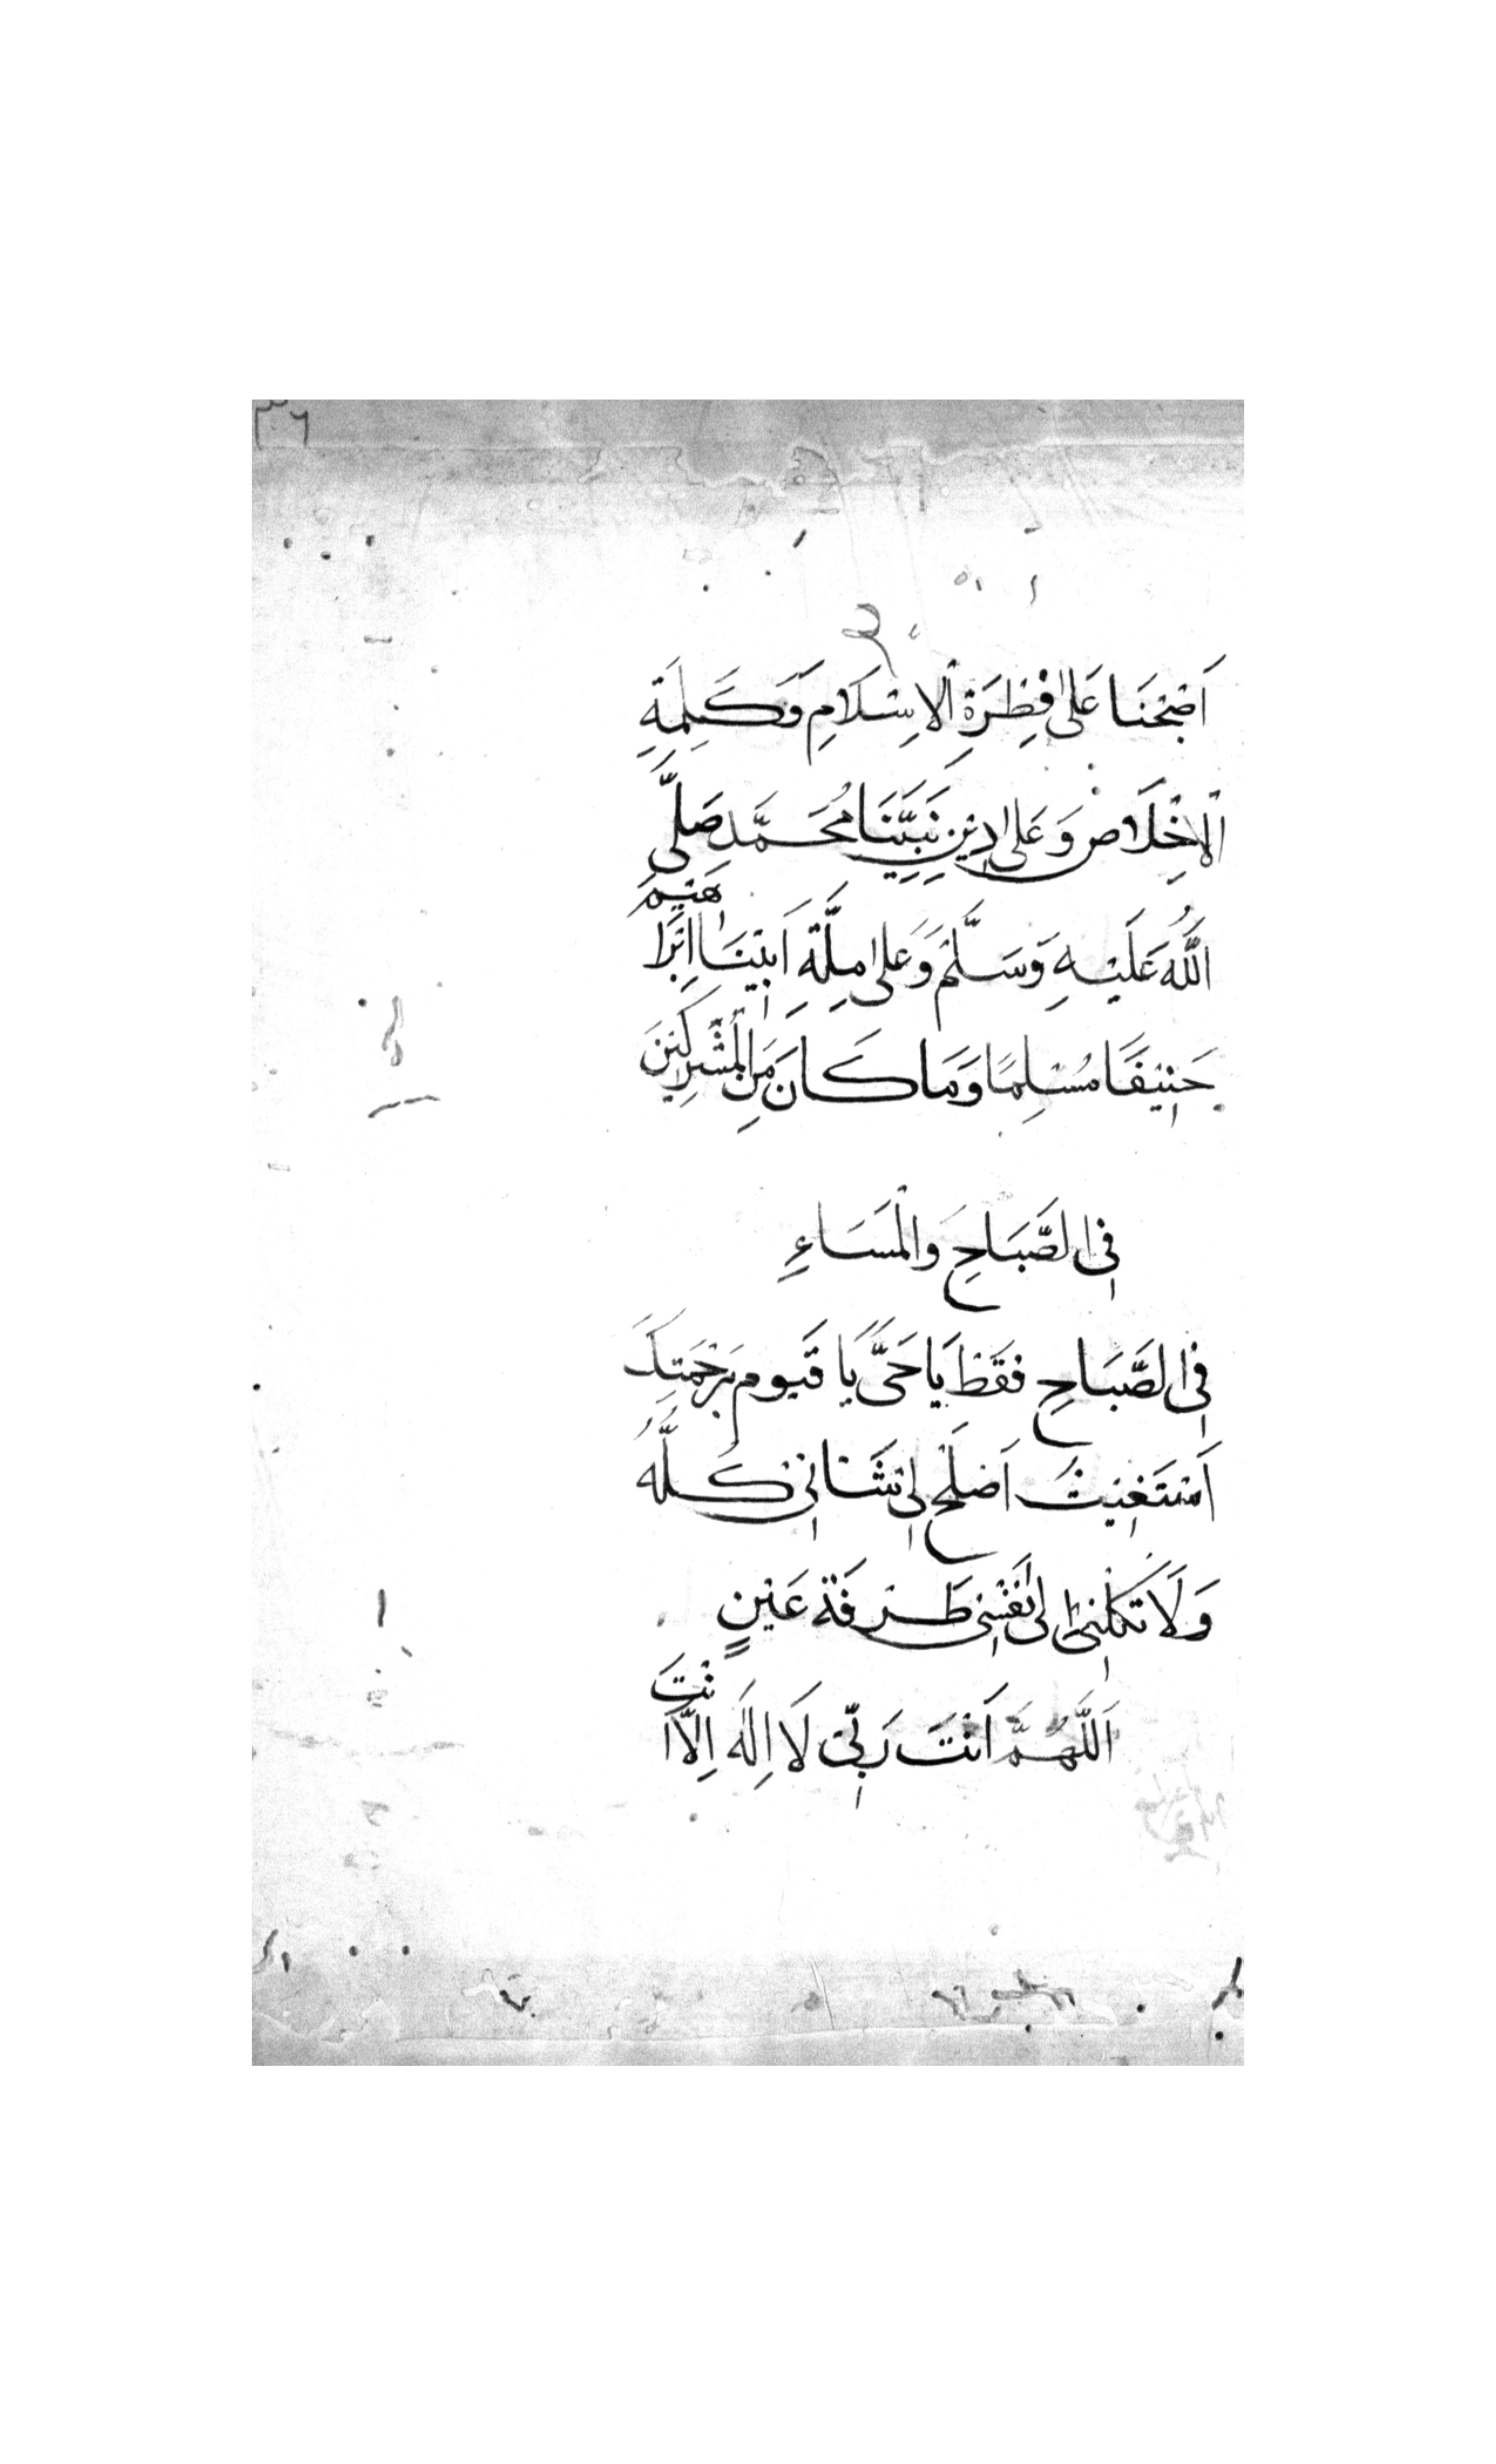 ٣٦
اَصْبَحْنَا عَلٰى فِطْرَةِ الْاِسْلَامِ وَكَلِمَةِ
الْاِخْلَاصِ وَعَلٰى دِيْنِ نَبِيِّنَا مُحَمَّدٍ صَلَّى
اللّٰهُ عَلَيْهِ وَسَلَّمَ وَعَلٰى مِلَّةِ اَبِيْنَا اِبْرَاهِيْمَ
حَنِيْفًا مُسْلِمًا وَمَا كَانَ مِنَ الْمُشْرِكِيْنَ
فِى الصَّبَاحِ وَالْمَسَاءِ
فِى الصَّبَاحِ فَقَطْ يَا حَىُّ يَا قَيُّومُ بِرَحْمَتِكَ
اَسْتَغِيْثُ اَصْلِحْ لِىْ شَانِىْ كُلَّهُ
وَلَا تَكِلْنِىْ اِلٰى نَفْسِىْ طَرْفَةَ عَيْنٍ
اَللّٰهُمَّ اَنْتَ رَبِّىْ لَا اِلٰهَ اِلَّا اَنْتَ